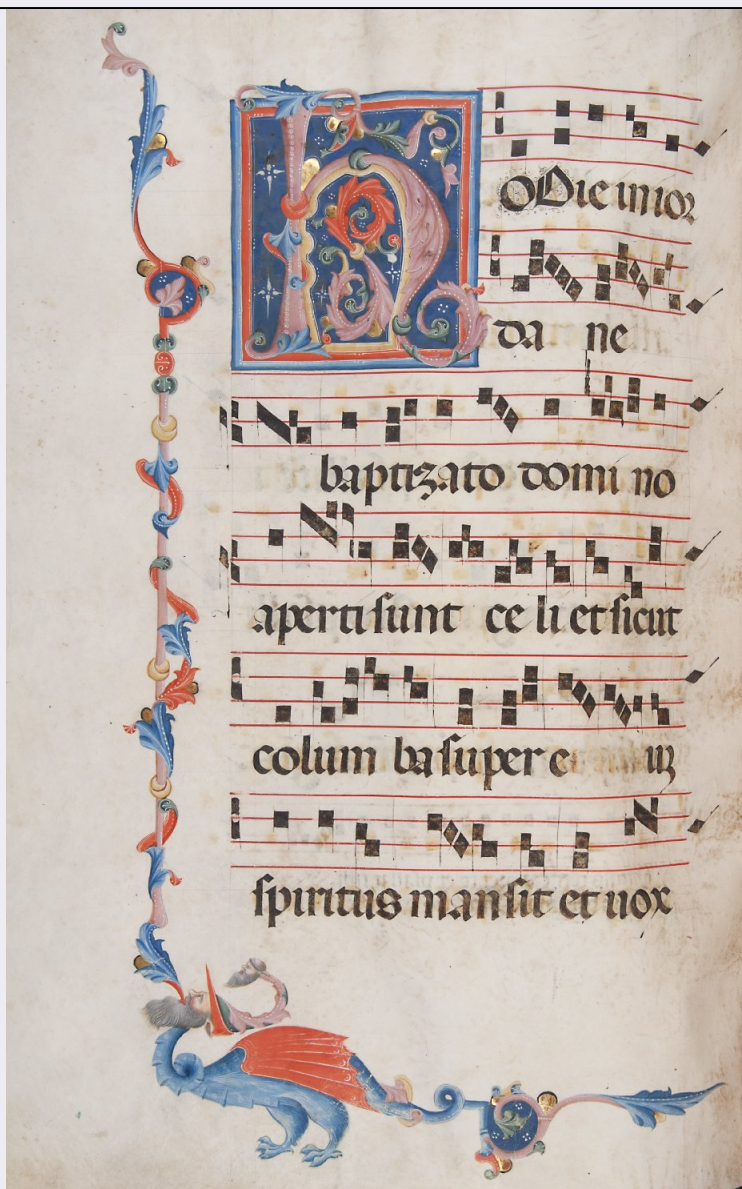 HODie in ior
da ne
baptizato domi no
aperti sunt ce li et sicut
colum ba super e uz
spiritus mansit et uox